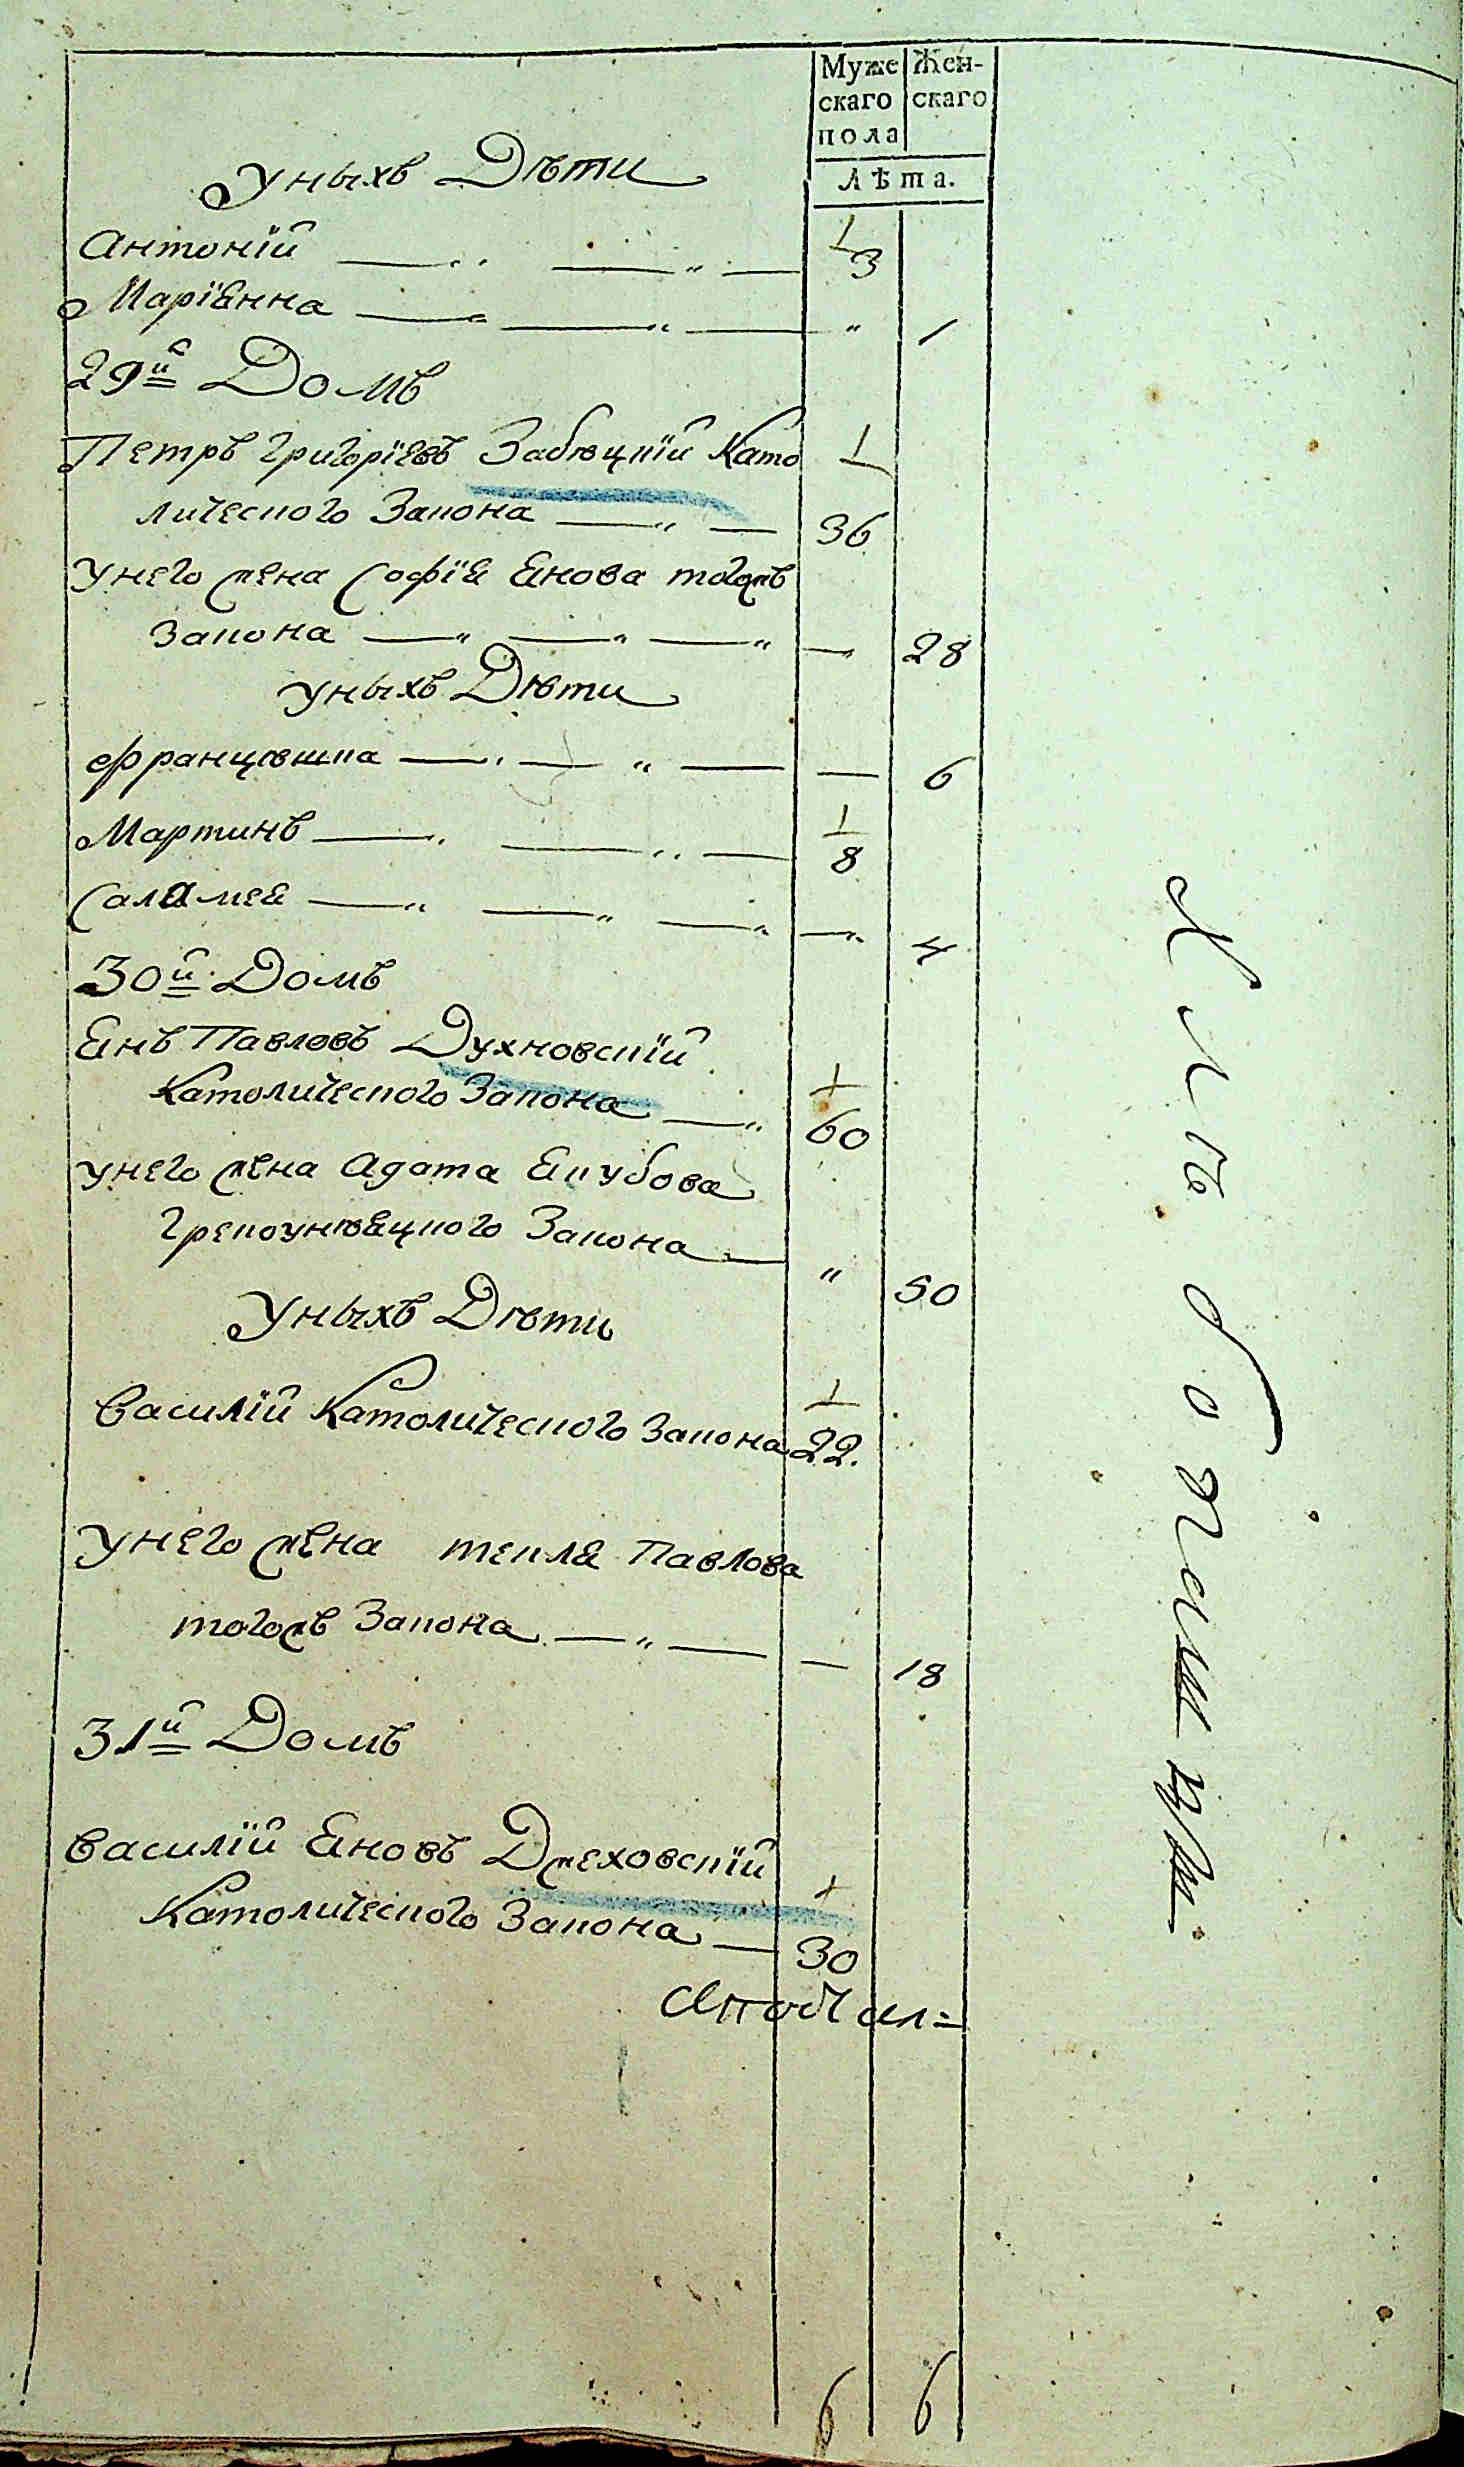 Муже Жен-
скаго скаго
пола
Лѣта.
Уныхъ Дѣти
Антоній 1 3
Маріянна " 1
29й Домъ
Петръ Григоріевъ Забѣцкій Като 1
лического Закона 36
Унего жена Софія Янова тогожъ
Закона — 28
Уныхъ Дѣти
Францѣшка — 6
Мартинъ 1 8
Саламея — 4
30й Домъ
Янъ Павловъ Духновскій 1
Католического Закона 60
Унего жена Агата Якубова
Грекоунѣяцкого Закона " 50
Уныхъ Дѣти
1
Василій Католического Закона 22.
Унего жена текля Павлова
тогожъ Закона — 18
31й Домъ
Василій Яновъ Држеховскій 1
Католического Закона 30
6 6